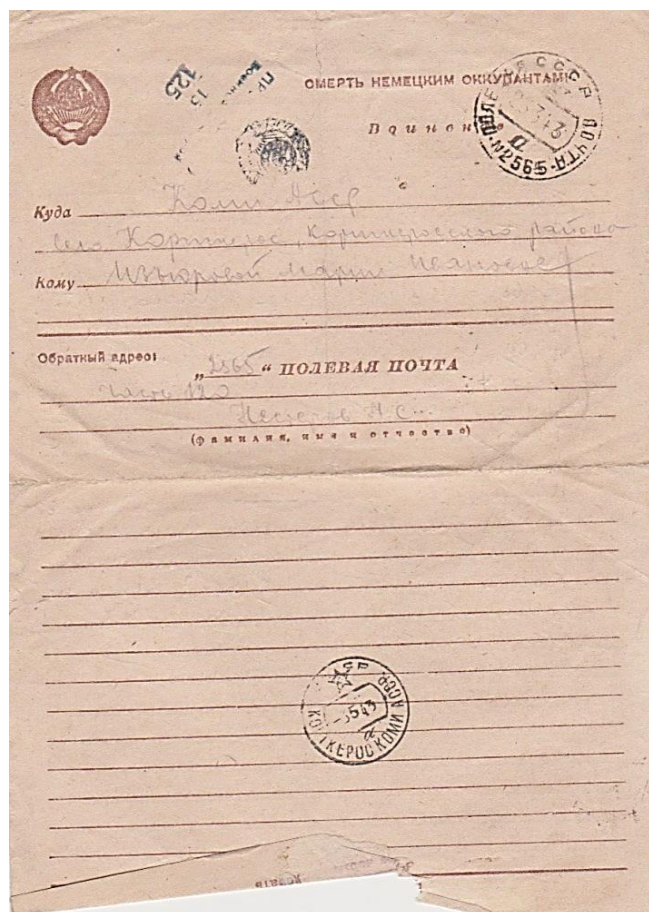 СМЕРТЬ НЕМЕЦКИМ ОККУПАНТАМ!
125
15
Воинское
СССР ПОЧТА-ПОЛЕВАЯ № 2565
а
Куда Коми Асср
село Корткерос, Корткеросского района
Кому Изъюровой Марие Ивановне
Обратный адрес:
„2565“ ПОЛЕВАЯ ПОЧТА
Часть 120
Нестеров А С
(фамилия, имя и отчество)
КОРТКЕРОС КОМИ АССР.
-3.5.43
а